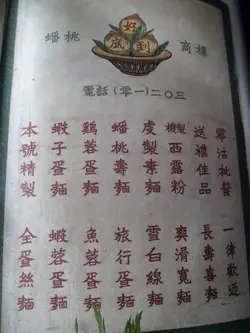 蟠桃
好到底
商標
電話(零一)二〇三
本號精製
蝦子蛋麵
鷄蓉蛋麵
蟠桃壽麵
虔製素麵
機製西露粉
送禮佳品
零沽批發
全蛋絲麵
蝦蓉蛋麵
魚蓉蛋麵
旅行蛋麵
雪白線麵
爽滑寬麵
長壽喜麵
一律歡迎